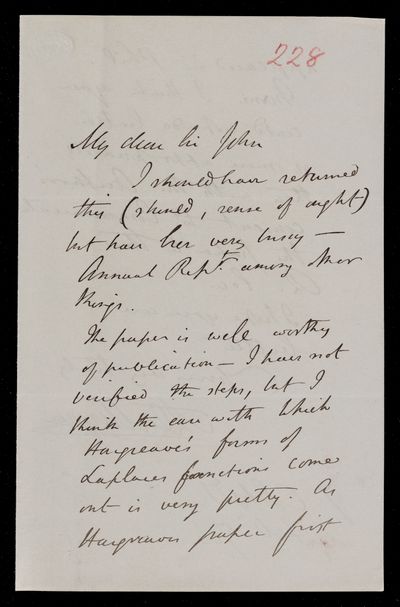 228
My dear Sir John
I should have returned
this (should, sense of ought)
but have been very busy —
Annual Rept. among other
things.
The paper is well worthy
of publication — I have not
verified the steps, but I
think the ease with which
Hargreave's forms of
Laplaces functions come
out is very pretty. As
Hargreaves paper first